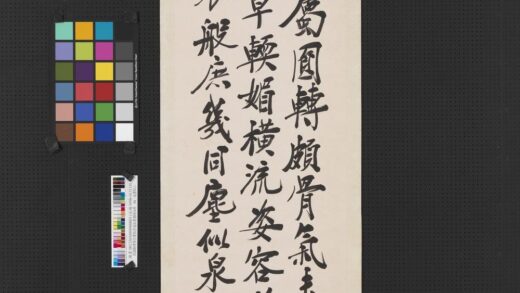 屬圓轉頗骨氣
輭媚橫流姿容
般庶幾同塵似泉